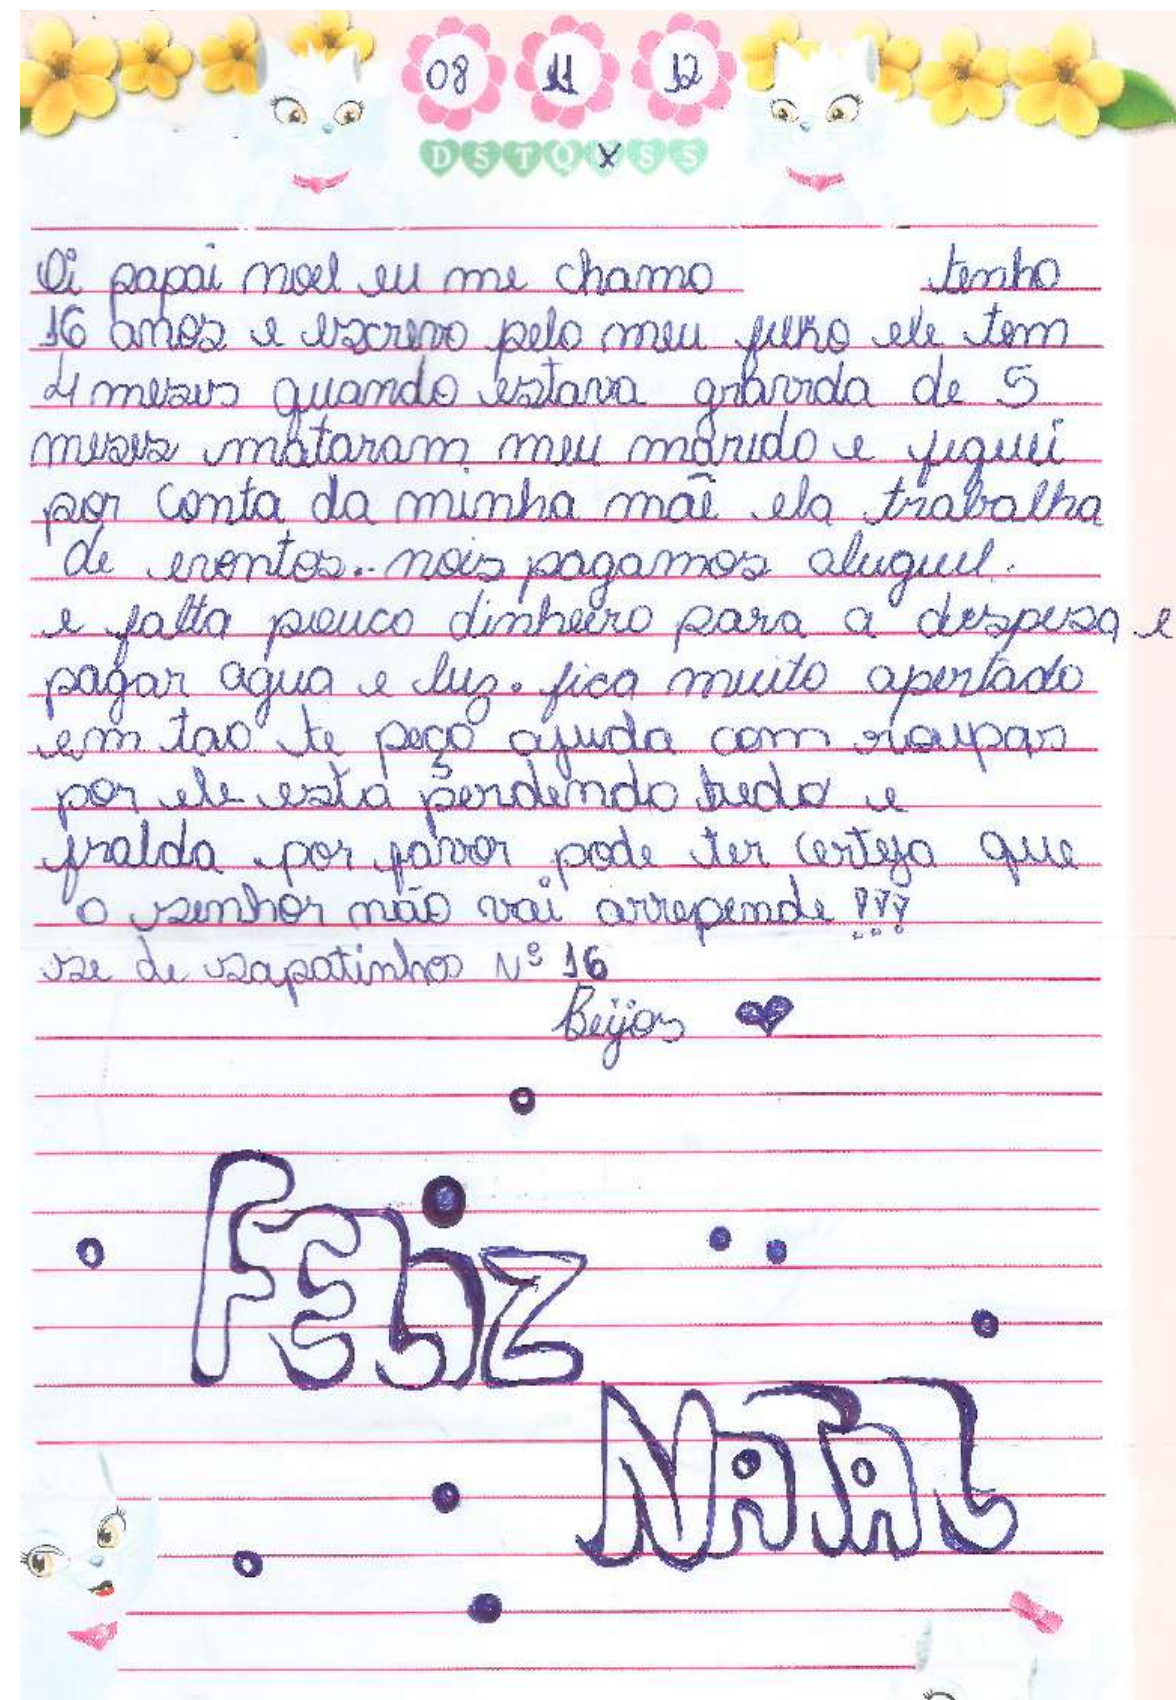 08 11 12
D S T Q X S S
Oi papai noel eu me chamo tenho
16 anos e escrevo pelo meu filho ele tem
4 meses quando estava gravida de 5
meses mataram meu marido e fiquei
por conta da minha mãe ela trabalha
de eventos.. nois pagamos aluguel.
e falta pouco dinheiro para a despesa e
pagar agua e luz. fica muito apertado
em tao te peço ajuda com roupas
por ele está perdendo tudo e
fralda por favor pode ter certeja que
o senhor não vai arrepende !!!
se de sapatinho Nº 16
Beijos
FELiZ
NATAL